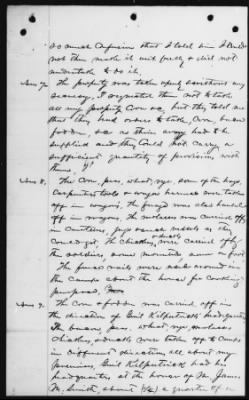 so much confusion that I told him I could
not then make it out fully & did not
undertake to do it.
Ans 7. The property was taken openly without any
secrecy, I requested them not to take
all my property Corn &c, but they told me
that they had orders to take Corn, bacon
fodder, &c as their army had to be
supplied and they could not carry a
sufficient quantity of provisions with
them.
Ans 8. The Corn, peas, wheat, rye, some of the hogs
Carpenters tools & wagon harness were taken
off in wagons, the forage was also hauled
off in wagons. the molasses was carried off
in canteens, jugs and such vessels as they
could get, the chickens, were carried off by
the soldiers, some mounted some on foot
The fence rails were used around in
the camps about the house for cooking
purposes,
Ans 9. The Corn & fodder was carried off in
the direction of Genl Kilpatricks headquarters
The bacon, peas, wheat, rye, molasses
chickens, & ducks were taken off to Camps
in different directions all about my
premises, Genl Kilpatrick had his
headquarters at the house of Mr James
M. Smith, about (1/4) a quarter of a